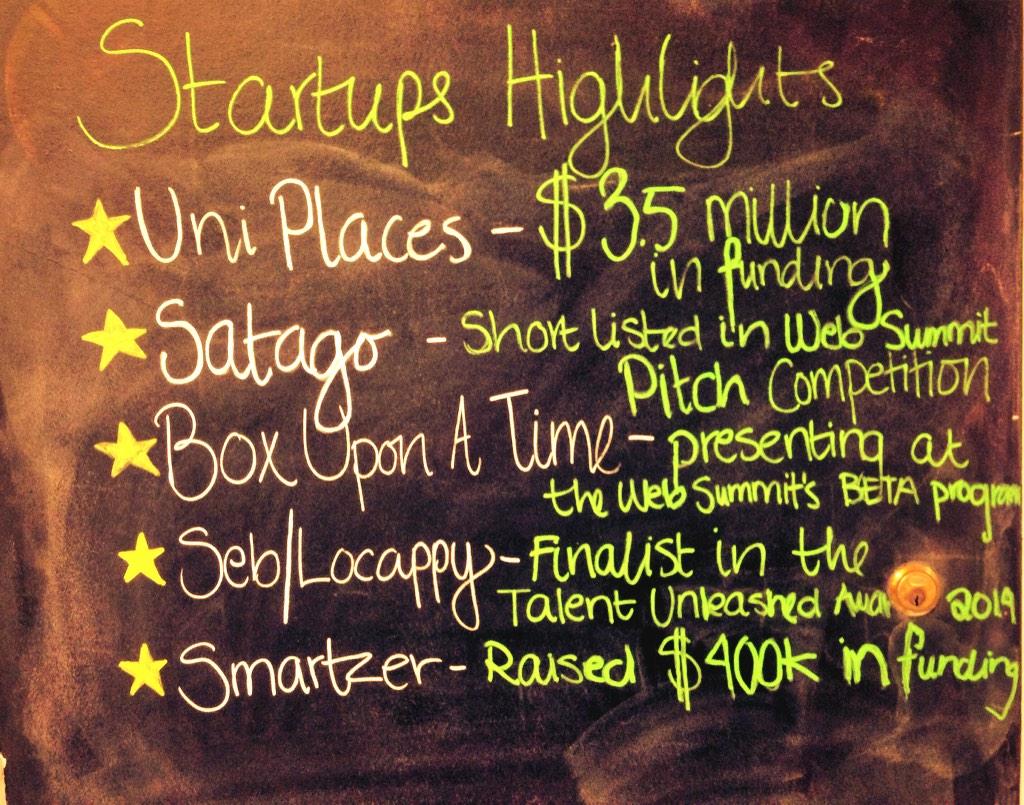 Startups Highlights
Uni Places - $3.5 million
in funding
Satago - Short listed in Web Summit
Pitch Competition
Box Upon A Time - presenting at
the Web Summit's BETA program
Seb/Locappy - Finalist in the
Talent Unleashed 2014
Smartzer - Raised $400k in funding